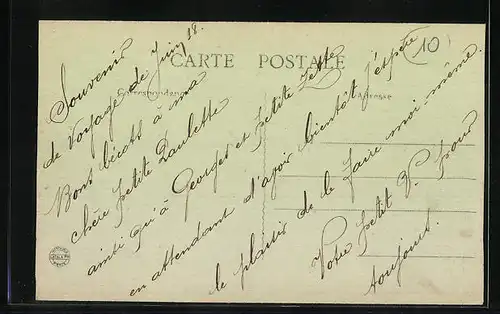 CARTE POSTALE
Correspondance
Adresse
10
Souvenir
de Voyage de Juin 18.
Bons bécots à ma
chère petite Paulette
ainsi qu'à Georges et petite
en attendant d'avoir bientôt j'espère
le plaisir de le faire moi-même.
Votre petit V. pour
toujours.